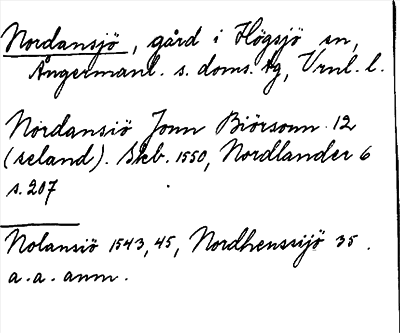 Nordansjö, gård i Högsjö sn,
Ångermanl. s. doms. tg, Vrnl. l.
Nordansiö Jonn Biörsonn 12
(seland). Skb. 1550, Nordlander 6
s. 207
Nolansiö 1543, 45, Nordhenssijö 35.
a. a. anm.